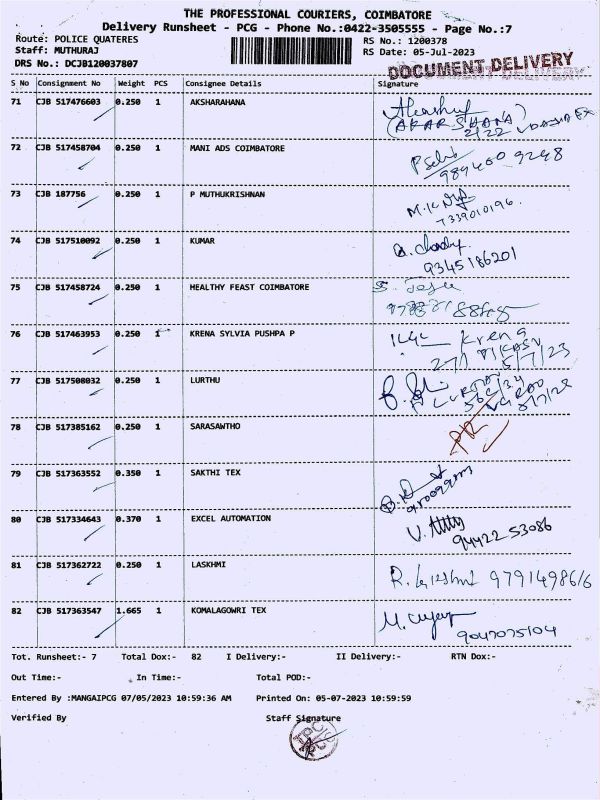 THE PROFESSIONAL COURIERS, COIMBATORE
Delivery Runsheet - PCG - Phone No.:0422-3505555 - Page No.:7
Route: POLICE QUATERES RS No.: 1200378
Staff: MUTHURAJ RS Date: 05-Jul-2023
DRS No.: DCJB120037807 DOCUMENT DELIVERY
S No Consignment No Weight PCS Consignee Details Signature
71 CJB 517476603 0.250 1 AKSHARAHANA
(AKARSHANA)
72 CJB 517458704 0.250 1 MANI ADS COIMBATORE
9894609248
73 CJB 187756 0.250 1 P MUTHUKRISHNAN
7339010196.
74 CJB 517510092 0.250 1 KUMAR
9345186201
75 CJB 517458724 0.250 1 HEALTHY FEAST COIMBATORE
76 CJB 517463953 0.250 1 KRENA SYLVIA PUSHPA P Krena
5/7/23
77 CJB 517508032 0.250 1 LURTHU
78 CJB 517385162 0.250 1 SARASAWTHO
79 CJB 517363552 0.350 1 SAKTHI TEX
80 CJB 517334643 0.370 1 EXCEL AUTOMATION
94422 53086
81 CJB 517362722 0.250 1 LASKHMI
82 CJB 517363547 1.665 1 KOMALAGOWRI TEX
9047075104
Tot. Runsheet:- 7 Total Dox:- 82 I Delivery:- II Delivery:- RTN Dox:-
Out Time:- In Time:- Total POD:-
Entered By :MANGAIPCG 07/05/2023 10:59:36 AM Printed On: 05-07-2023 10:59:59
Verified By Staff Signature